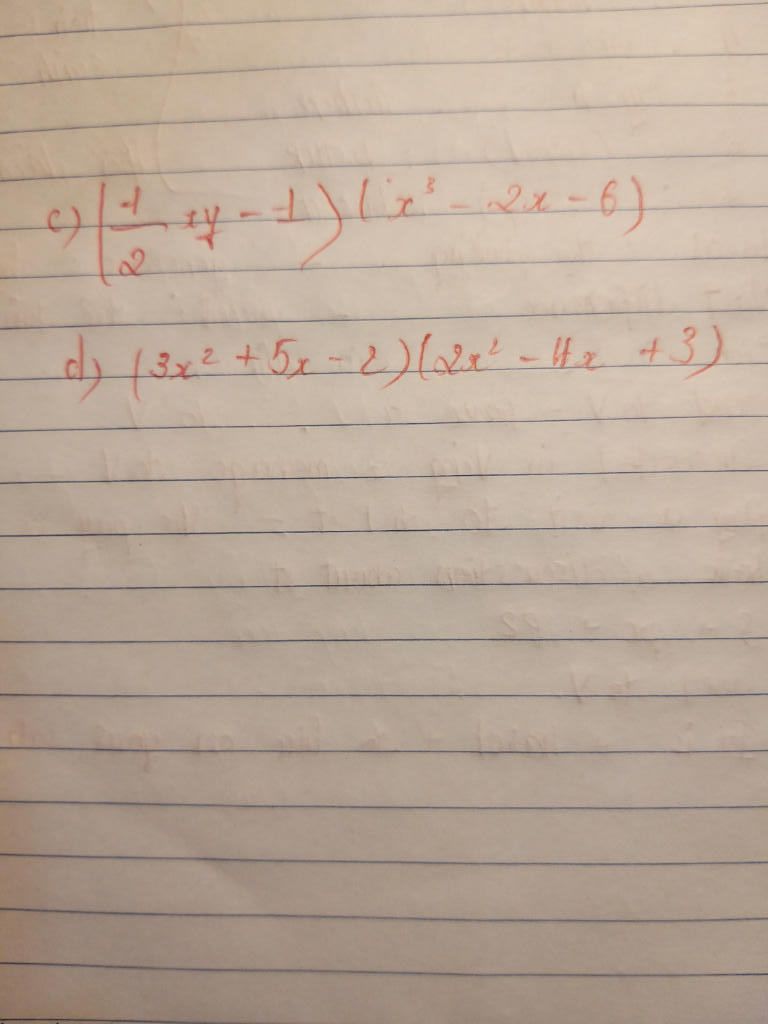 c) (1/2 xy - 1)(x³ - 2x - 6)
d) (3x² + 5x - 2)(2x² - 4x + 3)